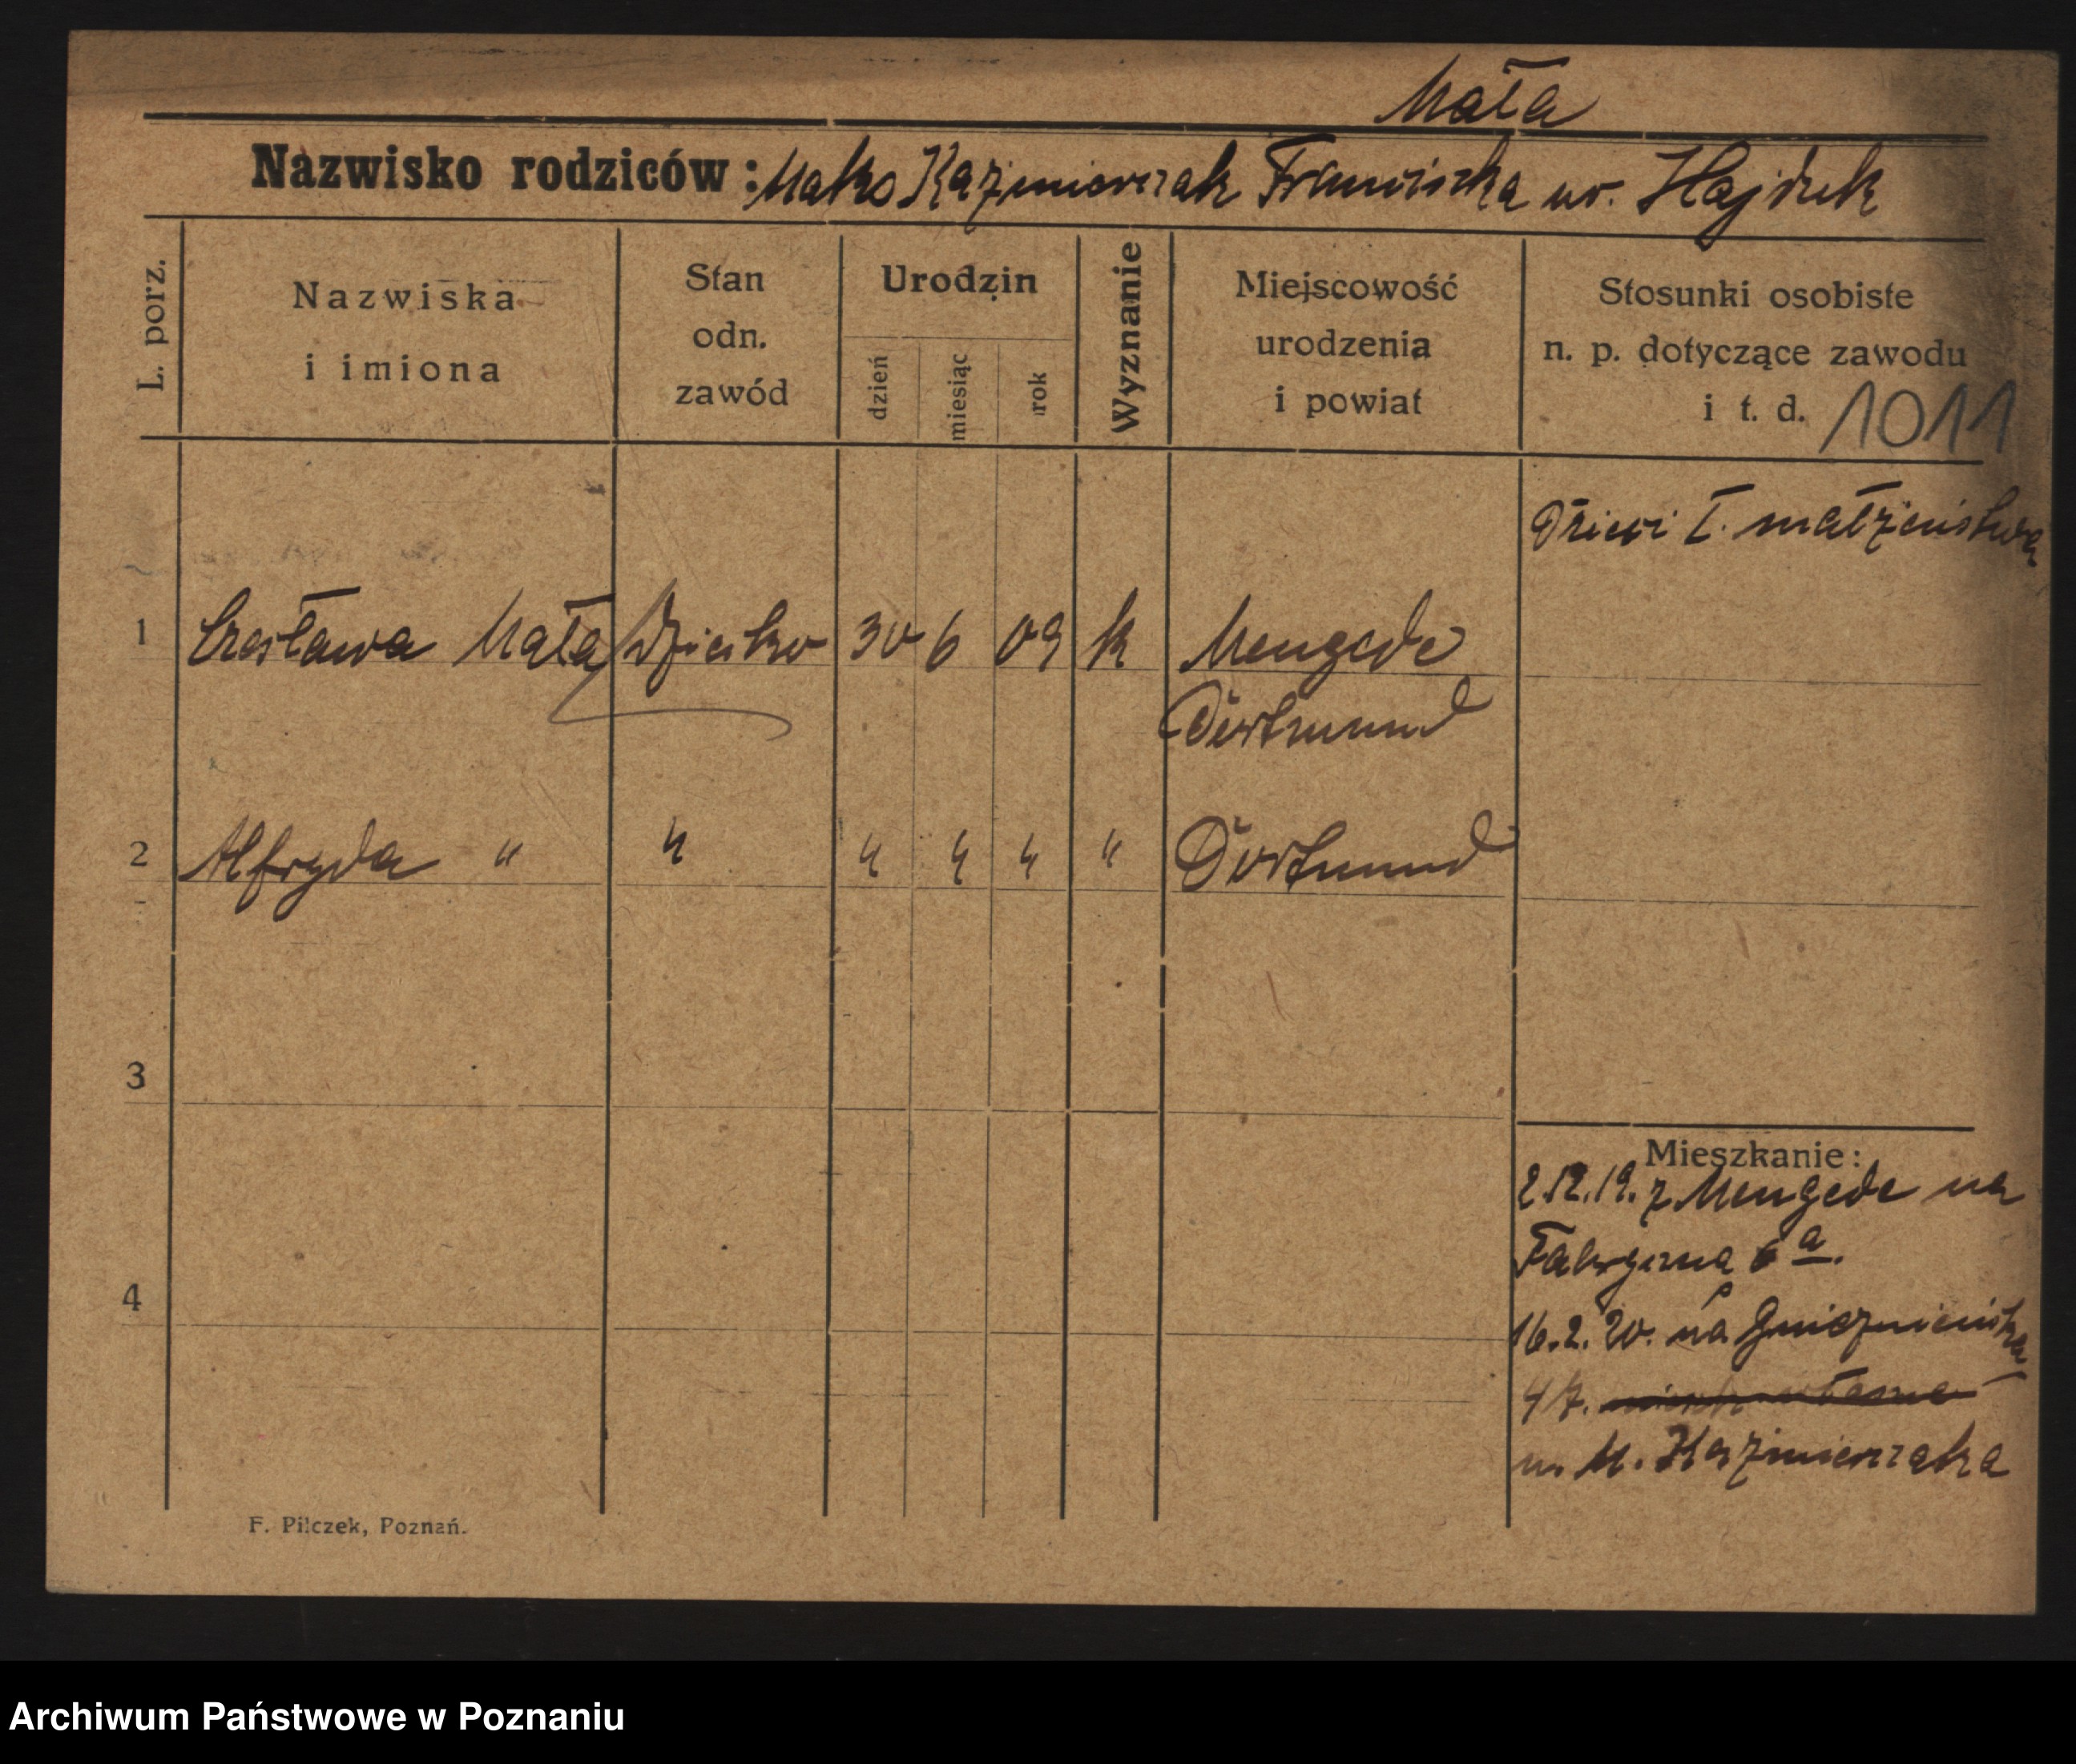 Mała
Nazwisko rodziców: Matka Kazmierczak Franciszka ur. Hajduk
L. porz.
Nazwiska
i imiona
Stan
odn.
zawód
Urodzin
dzień
miesiąc
rok
Wyznanie
Miejscowość
urodzenia
i powiat
Stosunki osobiste
n. p. dotyczące zawodu
i t. d. 1011
Dzieci I. małżeństwa
1 Czesława Mała Dziecko 30 6 09 k Mengede
Dortmund
2 Alfryda " " " " " " Dortmund
3
Mieszkanie:
2.12.19. z Mengede na
Fabryczna 6 a.
4
16.2.20. na Gnieźnieńska
47.
u. M. Kazmierczaka
F. Pilczek, Poznań.
Archiwum Państwowe w Poznaniu